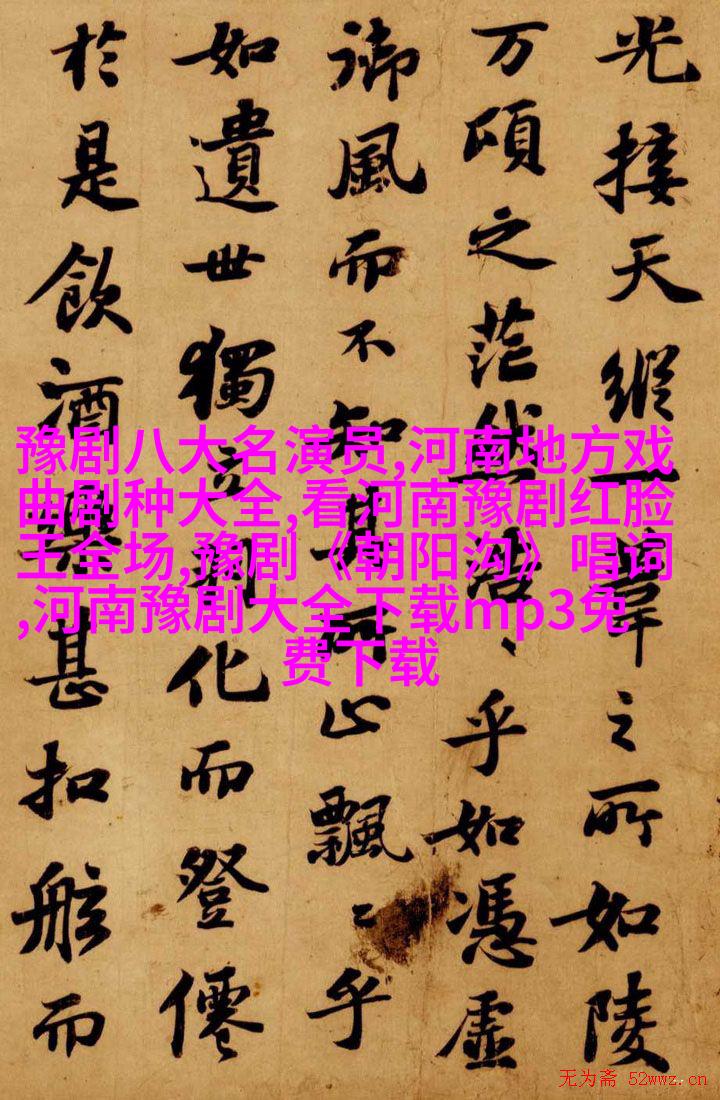 光接天縱一葦之所如陵
万頃之茫然浩〻乎如憑虛
御風而不知其所止飄〻乎
如遺世獨立羽化而登僊
於是飲酒樂甚扣舷而
豫剧八大名演员,河南地方戏
曲剧种大全,看河南豫剧红脸
王全场,豫剧《朝阳沟》唱词
,河南豫剧大全下载mp3免
费下载
无为斋 52wwz.cn